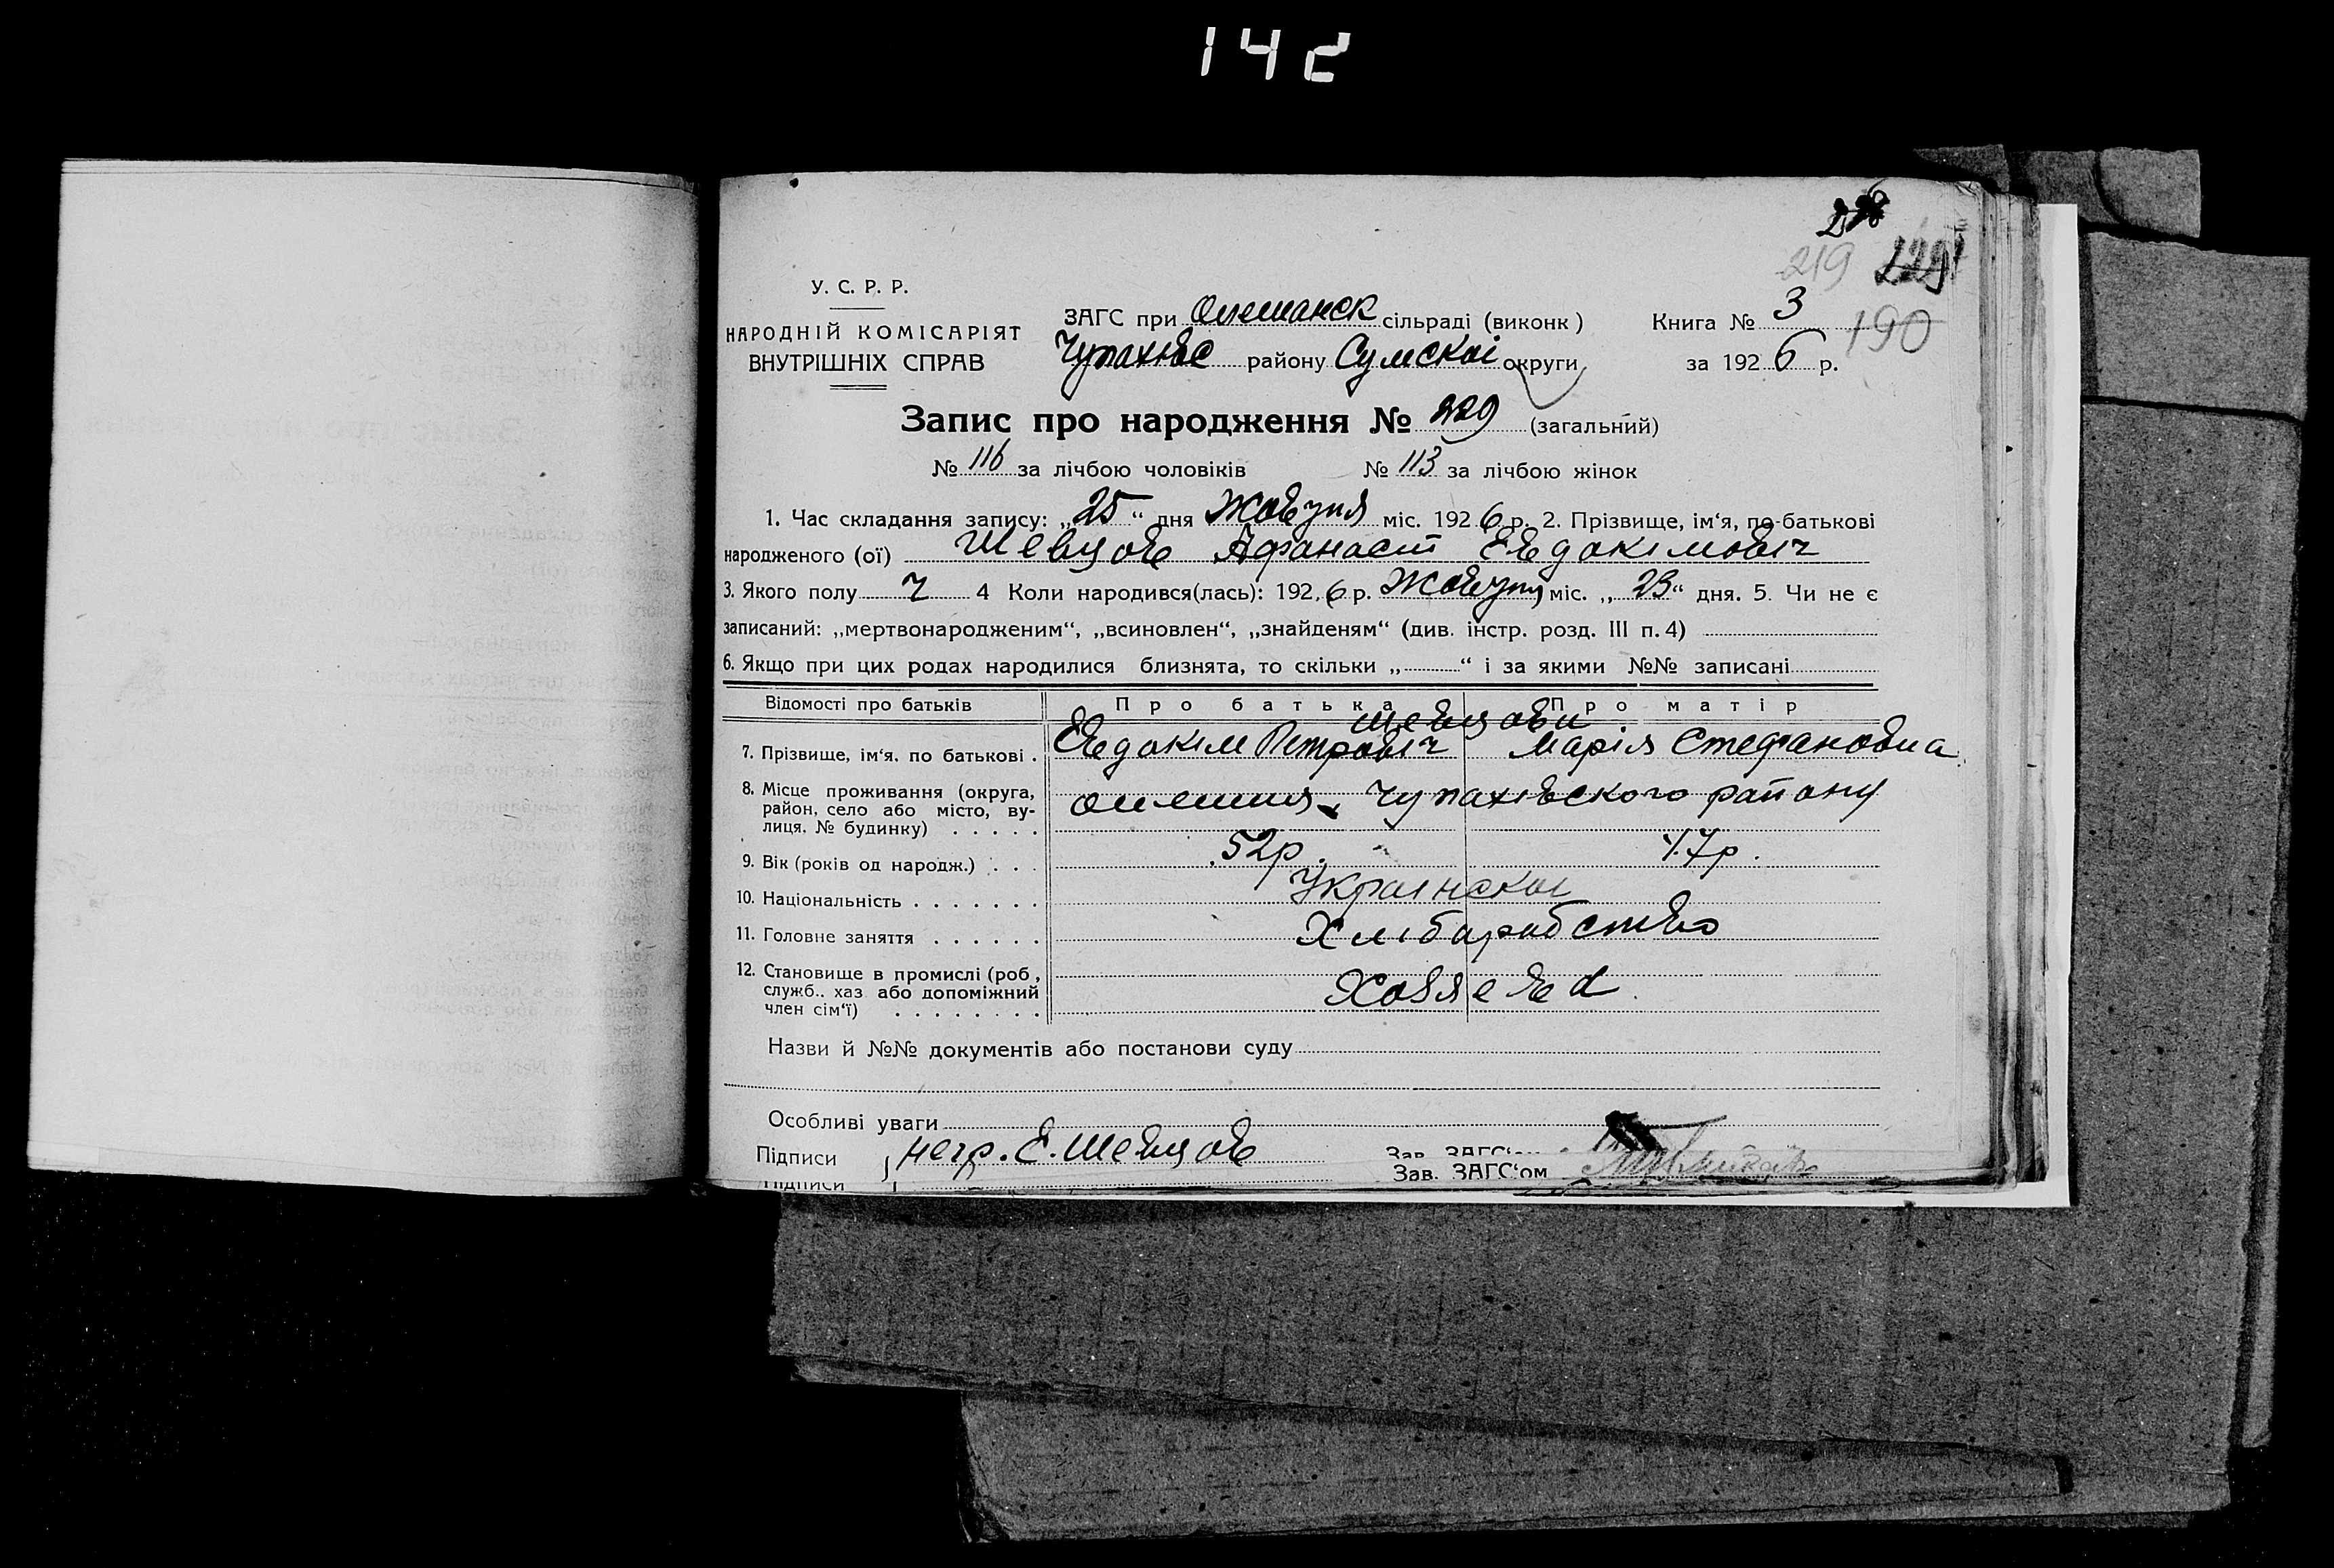 142
219
190
У. С. Р. Р.
НАРОДНІЙ КОМІСАРІЯТ
ВНУТРІШНІХ СПРАВ
ЗАГС при Олешанск сільраді (виконк)
Чупахівс району Сумскоі округи
Книга № 3
за 1926 р.
Запис про народження № 229 (загальний)
№ 116 за лічбою чоловіків № 113 за лічбою жінок
1. Час складання запису: „25“ дня Жовтня міс. 1926 р. 2. Прізвище, ім‘я, по-батькові
народженого (ої) Шевцов Афанасій Евдокімовіч
3. Якого полу ч 4 Коли народився(лась): 1926 р. Жовтня міс. „23“ дня. 5. Чи не є
записаний: „мертвонародженим“, „всиновлен“, „знайденям“ (див. інстр. розд. III п. 4)
6. Якщо при цих родах народилися близнята, то скільки „“ і за якими №№ записані
Відомості про батьків Про батька Про матір
Шевцови
7. Прізвище, ім‘я, по батькові . Евдокім Петровіч Марія Стефановна
8. Місце проживання (округа, район, село або місто, вулиця. № будинку) . . . . . Олешня, Чупахівского району
9. Вік (років од народж.) . . . 52р. 47р.
10. Національність . . . . . . . Украінскоі
11. Головне заняття . . . . . . Хлібаробство
12. Становище в промислі (роб., служб.. хаз. або допоміжний член сім‘ї) . . . . . . . . Хозяева
Назви й №№ документів або постанови суду
Особливі уваги
Підписи негр. Е. Шевцов Зав. ЗАГС‘ом
Підписи Зав. ЗАГС‘ом